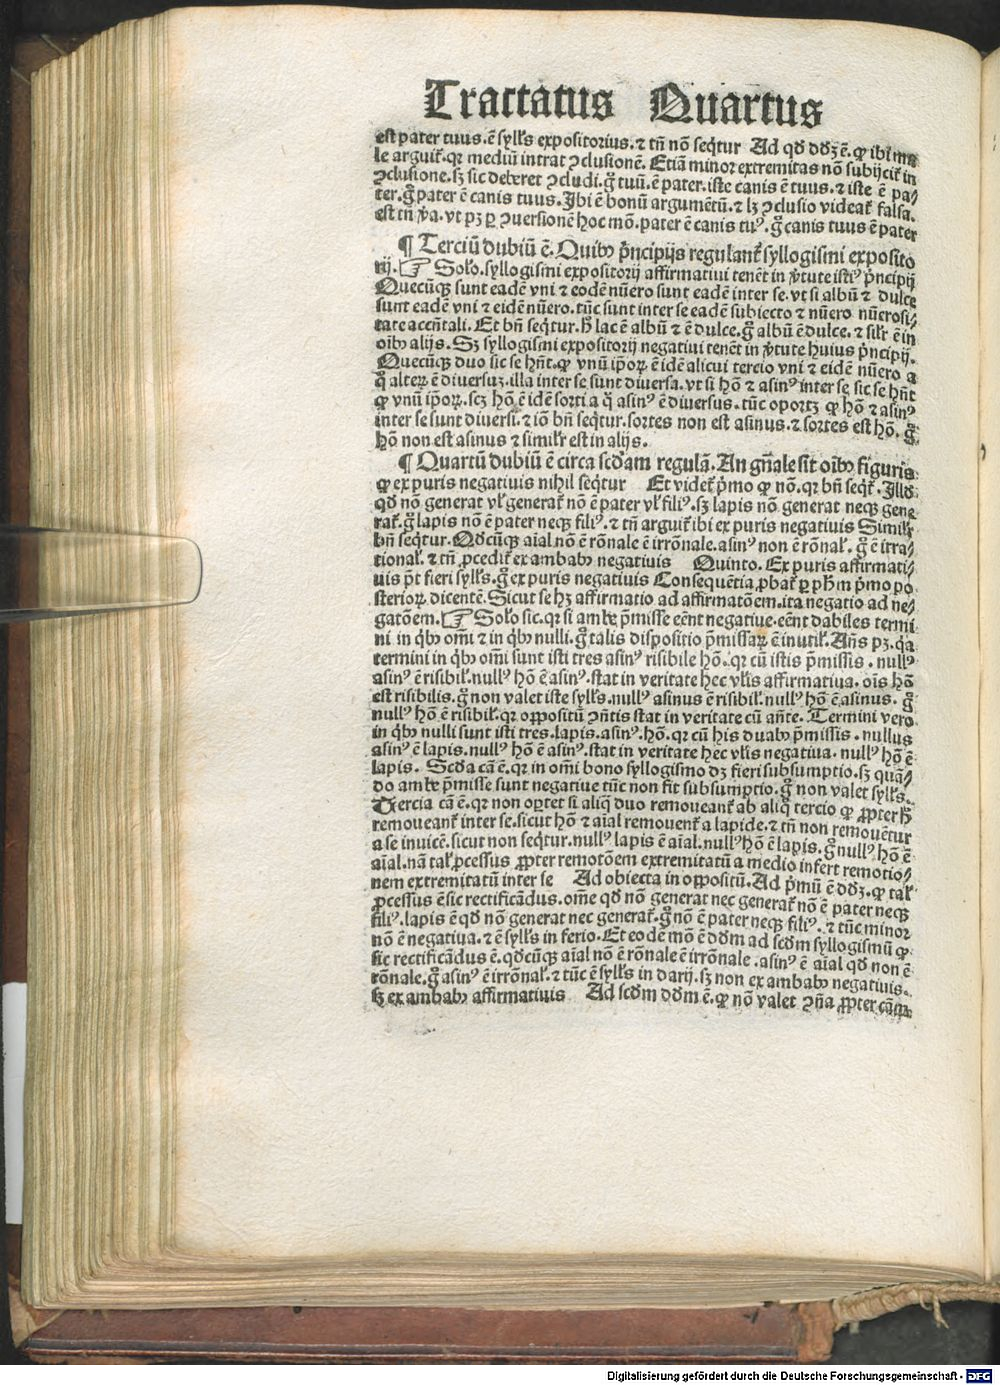 Tractatus Quartus
est pater tuus.ē syllꝰs expositorius.⁊ tñ nō seq̄tur Ad qd̄ dd̄ꝫ ē. ꝙ ibi ma
le arguit᷑.qꝛ mediū intrat ↄclusionē. Etiā minor extremitas nō subijcit᷑ in
ↄclusione.sꝫ sic deberet ↄcludi.gͦ tuū.ē pater.iste canis ē tuus.⁊ iste ē pa/
ter.gͦ pater ē canis tuus.Ibi ē bonū argumētū.⁊ lꝫ ↄclusio videat᷑ falsa.
est tñ ꝟa.vt pꝫ ꝑ ↄuersionē hoc mō.pater ē canis tuꝰ.gͦ canis tuus ē pater
¶ Terciū dubiū ē.Quibꝫ pͥncipijs regulant᷑ syllogismi exposito
rij.☞ Solͦo.syllogismi expositorij affirmatiui tenēt in ꝟtute istiꝰ pͥncipij
Quecūqꝫ sunt eadē vni ⁊ eodē nūero sunt eadē inter se.vt si albū ⁊ dulce
sunt eadē vni ⁊ eidē nūero.tūc sunt inter se eadē subiecto ⁊ nūero nūerosi/
tate accn̄tali. Et bn̄ seq̄tur.h̄ lac ē albū ⁊ ē dulce.gͦ albū ē dulce.⁊ silꝛ ē in
oībꝫ alijs. Sꝫ syllogismi expositorij negatiui tenēt in ꝟtute huius pͥncipij.
Quecūqꝫ duo sic se hn̄t.ꝙ vnū ip̄oꝝ ē idē alicui tercio vni ⁊ eidē nūero a
qͦ alteꝝ ē diuersuꝫ.illa inter se sunt diuersa.vt si hō ⁊ asinꝰ inter se sic se hn̄t
ꝙ vnū ip̄oꝝ.scꝫ hō ē idē sorti a qͦ asinꝰ ē diuersus.tūc oportꝫ ꝙ hō ⁊ asinꝰ
inter se sunt diuersi.⁊ iō bn̄ seq̄tur.sortes non est asinus.⁊ sortes est hō. gͦ
hō non est asinus ⁊ similꝛ est in alijs.
¶ Quartū dubiū ē circa scd̄am regulā.An gn̄ale sit oībꝫ figuris
ꝙ ex puris negatiuis nihil seq̄tur Et videt᷑ pͥmo ꝙ nō.qꝛ bn̄ seq̄t᷑.Illd̄
qd̄ nō generat vl̓ generat᷑ nō ē pater vl̓ filiꝰ.sꝫ lapis nō generat neqꝫ gene
rat᷑.gͦ lapis nō ē pater neqꝫ filiꝰ.⁊ tñ arguit᷑ ibi ex puris negatiuis Similꝛ
bn̄ seq̄tur.Qd̄cūqꝫ aīal nō ē rōnale ē irrōnale.asinꝰ non ē rōnal̓. gͦ ē irra/
tional̓.⁊ tñ ꝓcedit᷑ ex ambabꝫ negatiuis Quinto.Ex puris affirmati/
uis pn̄t fieri syllꝰs.gͦ ex puris negatiuis Consequētia ꝓbat᷑ ꝑ ph̄m pͥmo po
sterioꝝ.dicentē.Sicut se hꝫ affirmatio ad affirmatōem.ita negatio ad ne/
gatōem.☞ Solͦo sic.qꝛ si ambe p̄misse eēnt negatiue.eēnt dabiles termi
ni in qͥbꝫ omī ⁊ in qͥbꝫ nulli.gͦ talis dispositio p̄missaꝝ ē inutil̓.Ans̄ pꝫ.qꝛ
termini in qͥbꝫ omī sunt isti tres asinꝰ risibile hō.qꝛ cū istis p̄missis.nullꝰ
asinꝰ ē risibil̓.nullꝰ hō ē asinꝰ.stat in veritate hec vl̓is affirmatiua.oīs hō
est risibilis.gͦ non valet iste syllꝰs.nullꝰ asinus ē risibil̓.nullꝰ hō ē asinus. gͦ
nullꝰ hō ē risibil̓.qꝛ oppositū ↄn̄tis stat in veritate cū an̄te. Termini vero
in qͥbꝫ nulli sunt isti tres.lapis.asinꝰ.hō.qꝛ cū his duabꝫ p̄missis.nullus
asinꝰ ē lapis.nullꝰ hō ē asinꝰ.stat in veritate hec vl̓is negatiua.nullꝰ hō ē
lapis. Scd̄a cā ē.qꝛ in omī bono syllogismo dꝫ fieri subsumptio.sꝫ quā/
do ambe p̄misse sunt negatiue tūc non fit subsumptio.gͦ non valet syllꝰs.
Tercia cā ē.qꝛ non oꝑtet si aliq̄ duo remoueant᷑ ab aliq̄ tercio ꝙ ꝓpter h̄
remoueant᷑ inter se.sicut hō ⁊ aīal remouent᷑ a lapide.⁊ tñ non remouētur
a se inuicē.sicut non seq̄tur.nullꝰ lapis ē aīal.nullꝰ hō ē lapis.gͦ nullꝰ hō ē
aīal.nā tal̓ ꝓcessus ꝓpter remotōem extremitatū a medio infert remotio/
nem extremitatū inter se Ad obiecta in oppositū.Ad pͥmū ē dd̄ꝫ.ꝙ tal̓
ꝓcessus ē sic rectificādus.ome qd̄ nō generat nec generat᷑ nō ē pater neqꝫ
filiꝰ.lapis ē qd̄ nō generat nec generat᷑.gͦ nō ē pater neqꝫ filiꝰ.⁊ tūc minor
nō ē negatiua.⁊ ē syllꝰs in ferio.Et eodē mō ē dd̄m ad scd̄m syllogismū ꝙ
sic rectificādus ē.qd̄cūqꝫ aīal nō ē rōnale ē irrōnale.asinꝰ ē aīal qd̄ non ē
rōnale.gͦ asinꝰ ē irrōnal̓.⁊ tūc ē syllꝰs in darij.sꝫ non ex ambabꝫ negatiuis.
sꝫ ex ambabꝫ affirmatiuis Ad scd̄m dd̄m ē.ꝙ nō valet ↄn̄a ꝓpter
Digitalisierung gefördert durch die Deutsche Forschungsgemeinschaft - DFG